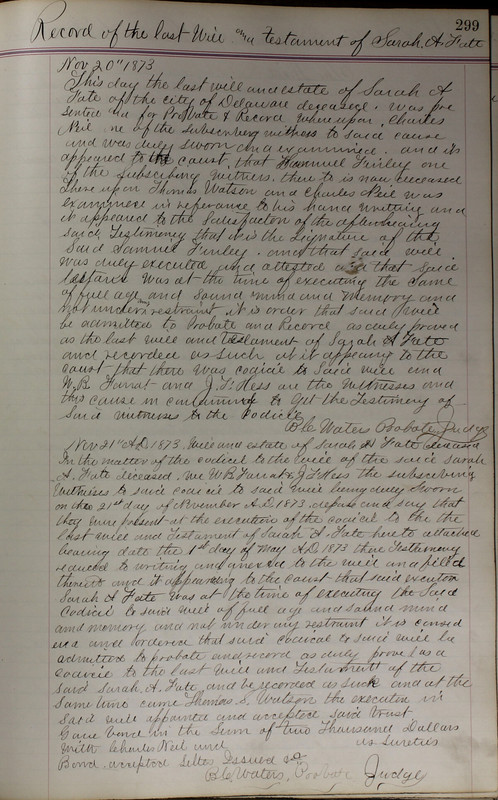 299
Record of the last Will and Testament of Sarah A Fate
Nov 20" 1873
This day the last will and estate of Sarah A
Fate of the city of Delaware deceased. was pre
sented for Probate & Record whereupon Charles
Neil one of the subscribing witness to said cause
and was duly sworn and examined. and it
appeared to the court, that Samuel Finley one
of the subscribing witness. there to is now deceased
there upon Thomas Watson and Charles Neil was
examined in referance to his hand writing and
it appeared to the Satisfaction of the after hearing
said Testimony that it is the signature of the
said Samuel Finley. and that said will
was duly executed and attested and that said
was at the time of executing the same
of full age and sound mind and memory and
not under restraint it is order that said will
be admitted to Probate and Record as duly proved
as the last will and testament of Sarah A Fate
and recorded as such at it appearing to the
court that there was codicil to said will and
W. B. Farrat and J. F. Hess are the witnesses and
this cause in to get the Testimony of
said witnesses to the codicil
B C Waters Probate Judge
Nov 21st A.D. 1873. Will and estate of Sarah A Fate deceased
In the matter of the codicil to the will of the said Sarah
A. Fate deceased. we W B Farrat & J F Hess the subscribing
witnesses to said codicil to said will being duly sworn
on the 21st day of November A.D. 1873, depose and say that
they were present at the execution of the codicil to the the
last will and Testament of Sarah A Fate here to attached
bearing date the 1st day of May A.D. 1873 there Testemony
reduced to writing and anexed to the will and filed
therewith and it appearing to the court that said
Sarah A Fate was at the time of executing the said
Codicil to said will of full age and sound mind
and memory and not under any restraint it is
and ordered that said codical to said will be
admitted to probate and record as duly proved as a
codicil to the last will and Testament of the
said Sarah A. Fate and be recorded as such and at the
same time came Thomas S. Watson the executor in
said will appointed and accepted said trust
Gave bond in the sum of two Thousand Dollars
with Charles Neil and as sureties
Bond accepted letters Issued
B. C. Waters, Probate Judge